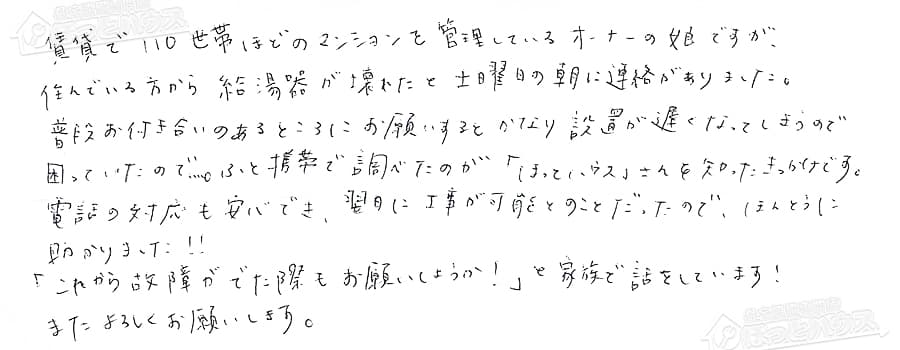 賃貸で110世帯ほどのマンションを管理しているオーナーの娘ですが、
住んでいる方から給湯器が壊れたと土曜日の朝に連絡がありました。
普段お付き合いのあるところにお願いするとかなり設置が遅くなってしまうので
困っていたので…。ふと携帯で調べたのが「ほっとハウス」さんを知ったきっかけです。
電話の対応も安心でき、翌日に工事が可能とのことだったので、ほんとうに
助かりました!!
「これから故障がでた際もお願いしようか!」と家族で話をしています!
またよろしくお願いします。
ほっとハウス